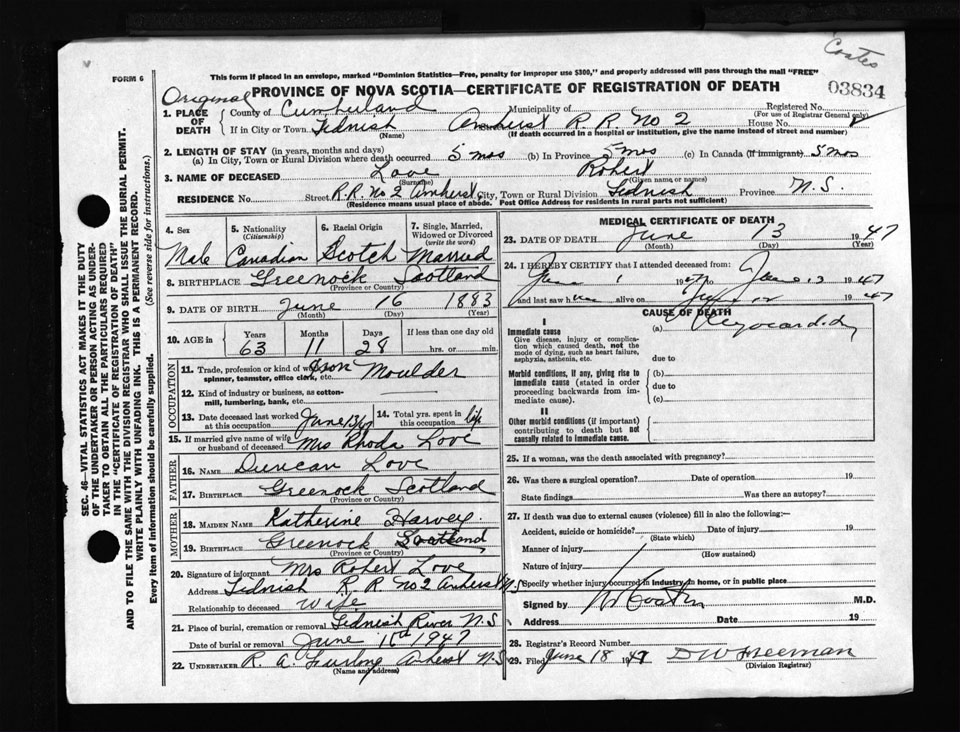 Coates
FORM 6
This form if placed in an envelope, marked "Dominion Statistics—Free, penalty for improper use $300," and properly addressed will pass through the mail "FREE"
03834
PROVINCE OF NOVA SCOTIA—CERTIFICATE OF REGISTRATION OF DEATH
Original
1. PLACE OF DEATH County of Cumberland Municipality of Registered No. (For use of Registrar General only)
If in City or Town Tidnish (Name) Amherst R.R. No 2 House No.
(If death occurred in a hospital or institution, give the name instead of street and number)
2. LENGTH OF STAY (in years, months and days)
(a) In City, Town or Rural Division where death occurred 5 mos (b) In Province 5 mos (c) In Canada (If immigrant) 5 mos
3. NAME OF DECEASED Love (Surname) Robert (Given name or names)
RESIDENCE No. Street R.R. No 2 Amherst City, Town or Rural Division Tidnish Province N.S.
(Residence means usual place of abode. Post Office Address for residents in rural parts not sufficient)
4. Sex 5. Nationality (Citizenship) 6. Racial Origin 7. Single, Married, Widowed or Divorced (write the word)
Male Canadian Scotch Married
8. BIRTHPLACE Greenock Scotland
(Province or Country)
9. DATE OF BIRTH June 16 1883
(Month) (Day) (Year)
10. AGE in Years Months Days If less than one day old
63 11 28 hrs. or min.
OCCUPATION
11. Trade, profession or kind of work as spinner, teamster, office clerk, etc. Iron Moulder
12. Kind of industry or business, as cotton-mill, lumbering, bank, etc.
13. Date deceased last worked at this occupation June 13 14. Total yrs. spent in this occupation life
15. If married give name of wife or husband of deceased Mrs Rhoda Love
FATHER
16. NAME Duncan Love
17. BIRTHPLACE Greenock Scotland
(Province or Country)
MOTHER
18. MAIDEN NAME Katherine Harvey
19. BIRTHPLACE Greenock Scotland
(Province or Country)
20. Signature of informant Mrs Robert Love
Address Tidnish R.R. No 2 Amherst N.S
Relationship to deceased Wife
21. Place of burial, cremation or removal Tidnish River N.S
Date of burial or removal June 15th 1947
22. UNDERTAKER R. A. Furlong Amherst N.S
(Name and address)
MEDICAL CERTIFICATE OF DEATH
23. DATE OF DEATH June 13 1947
(Month) (Day) (Year)
24. I HEREBY CERTIFY that I attended deceased from:
June 1 1947 to June 13 1947
and last saw him alive on June 12 1947
CAUSE OF DEATH
I
Immediate cause (a)
Give disease, injury or complication which caused death, not the mode of dying, such as heart failure, asphyxia, asthenia, etc.
due to
Morbid conditions, if any, giving rise to immediate cause (stated in order proceeding backwards from immediate cause).
(b)
due to
(c)
II
Other morbid conditions (if important) contributing to death but not causally related to immediate cause.
25. If a woman, was the death associated with pregnancy?
26. Was there a surgical operation? Date of operation 19
State findings Was there an autopsy?
27. If death was due to external causes (violence) fill in also the following:—
Accident, suicide or homicide? Date of injury 19
(State which)
Manner of injury (How sustained)
Nature of injury
Specify whether injury occurred in industry, in home, or in public place
Signed by M.D.
Address Date 19
28. Registrar's Record Number
29. Filed June 18 1947 D W Freeman
(Division Registrar)
SEC. 46—VITAL STATISTICS ACT MAKES IT THE DUTY
OF THE UNDERTAKER OR PERSON ACTING AS UNDER-
TAKER TO OBTAIN ALL THE PARTICULARS REQUIRED
IN THE "CERTIFICATE OF REGISTRATION OF DEATH"
AND TO FILE THE SAME WITH THE DIVISION REGISTRAR WHO SHALL ISSUE THE BURIAL PERMIT.
WRITE PLAINLY WITH UNFADING INK. THIS IS A PERMANENT RECORD.
Every item of information should be carefully supplied. (See reverse side for instructions.)